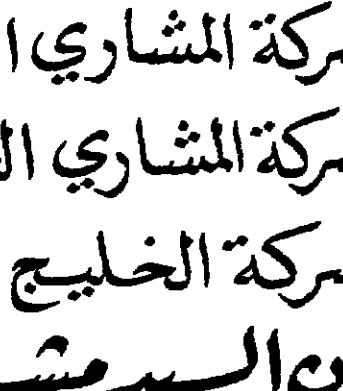 ركة المشاري ا
ركة المشاري ال
ركة الخليج